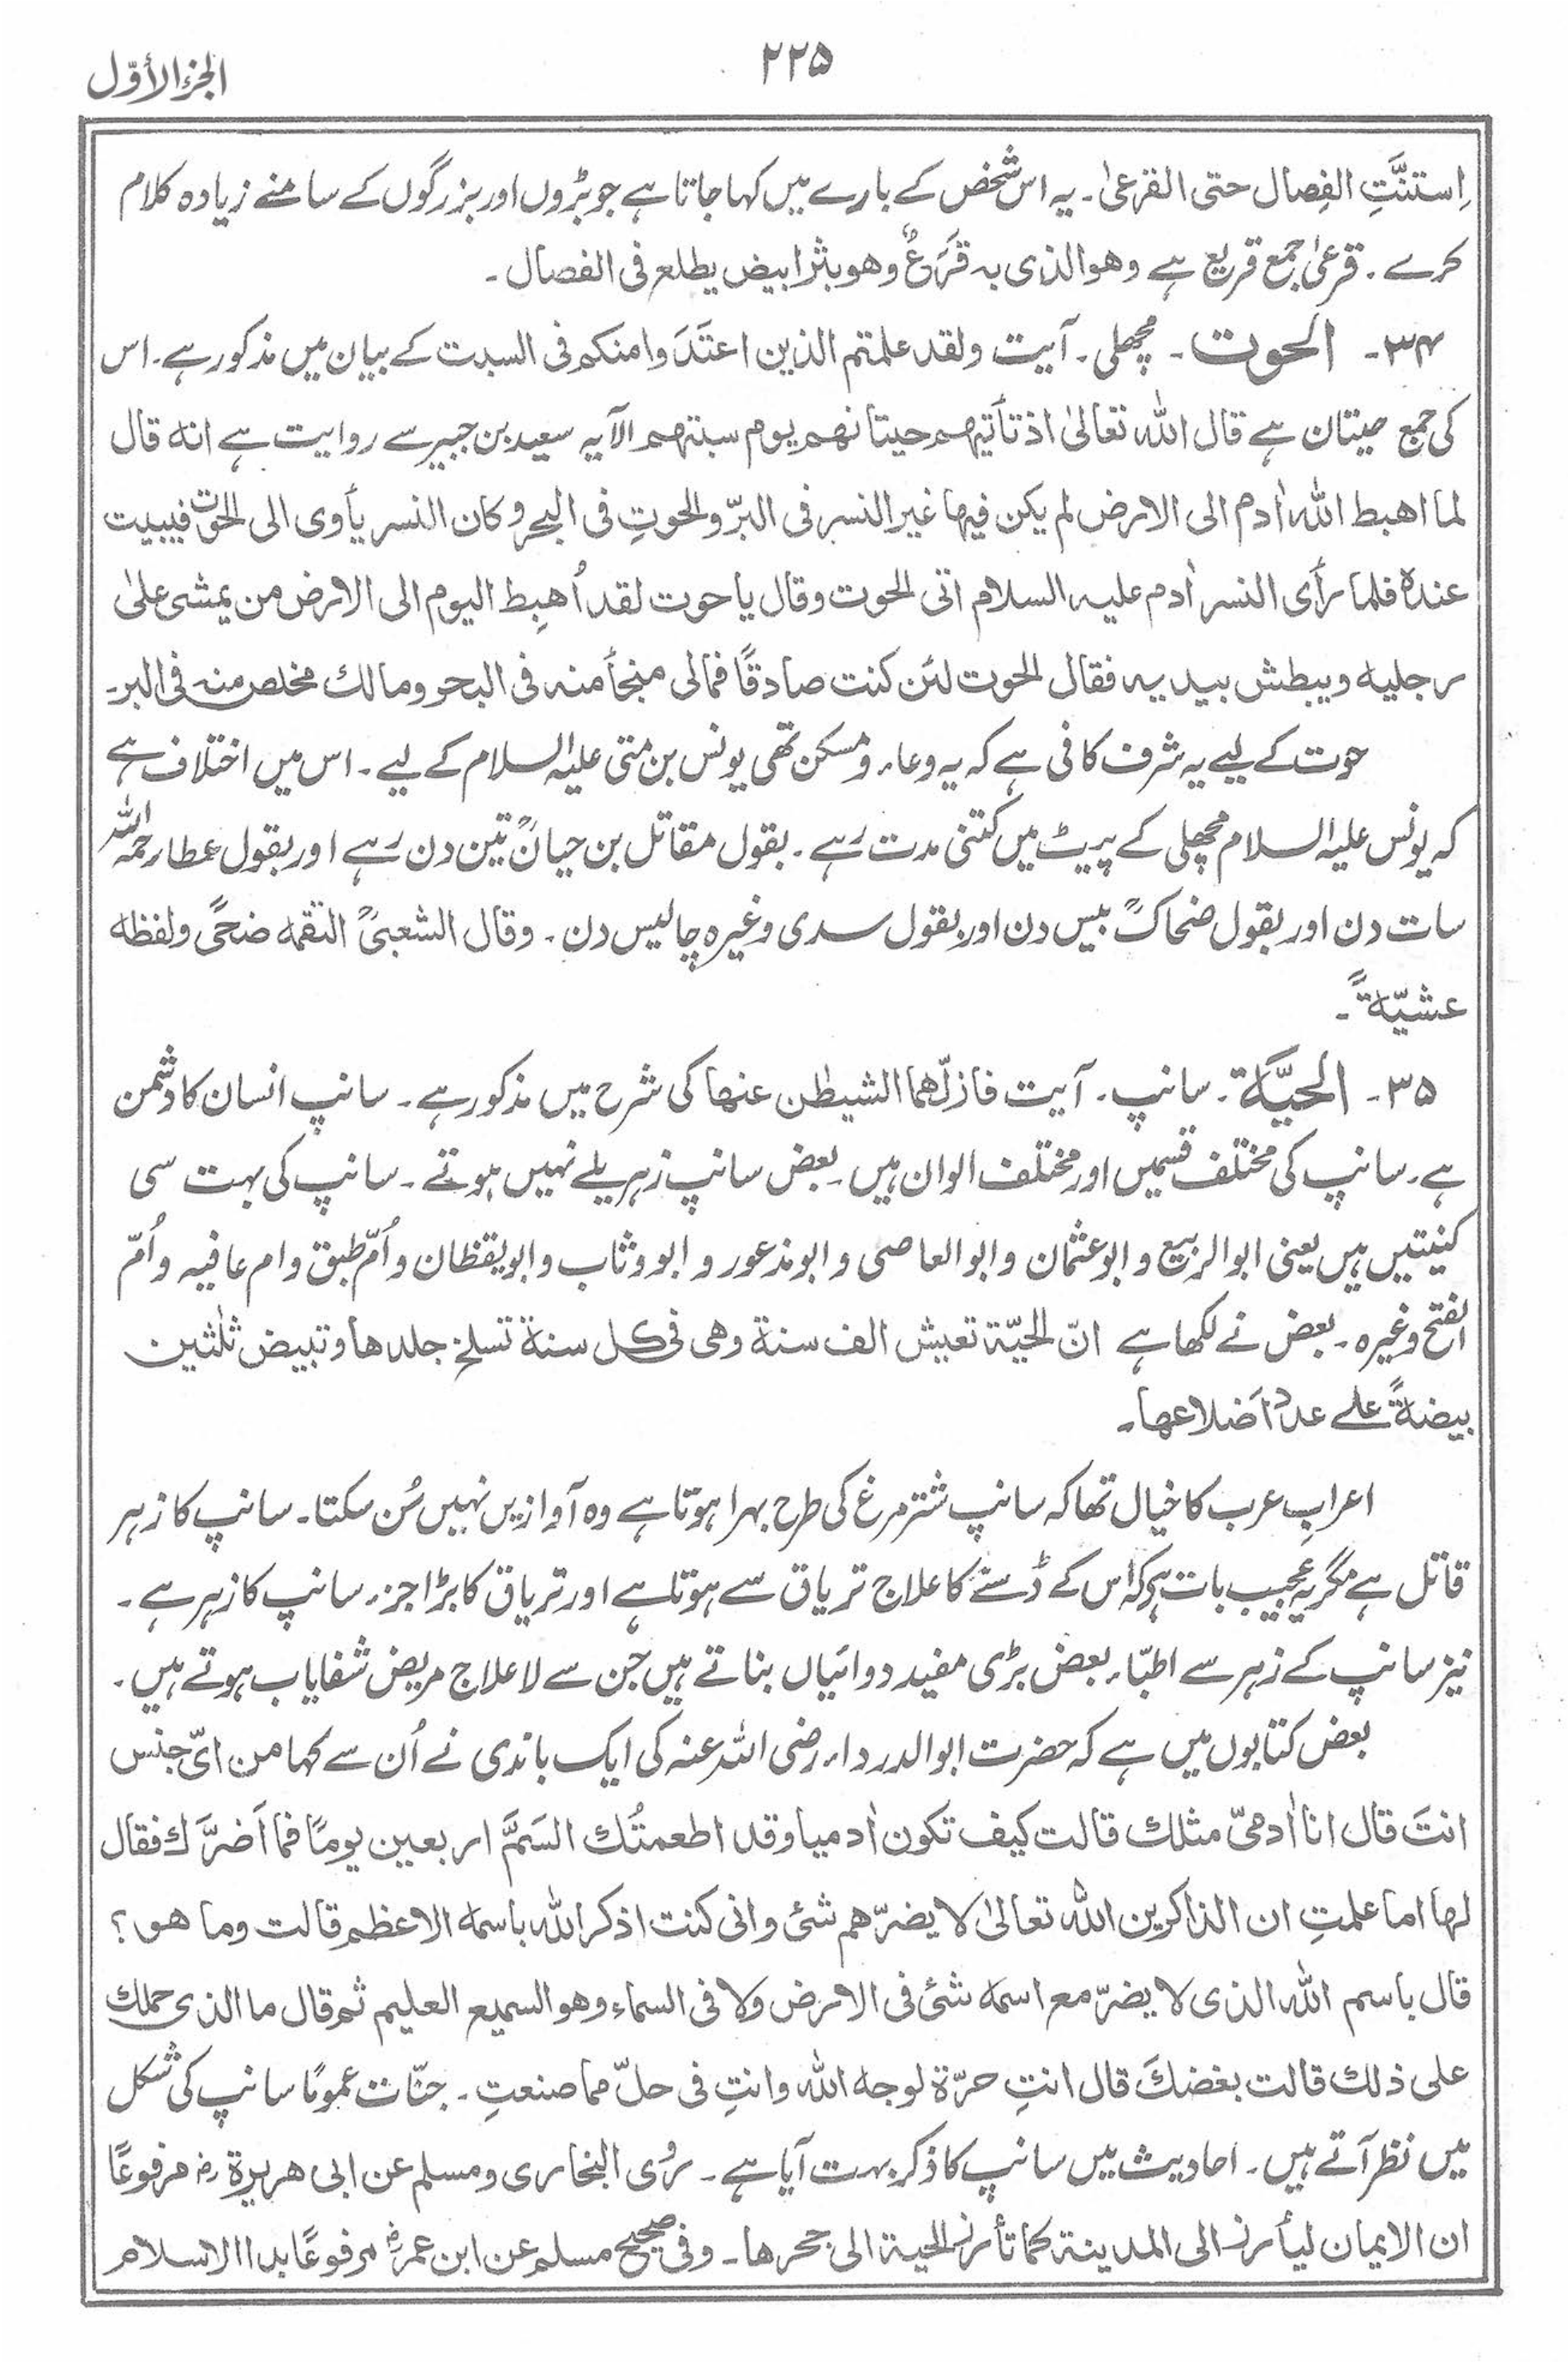 الجزء الأوّل
۲۲۵
اِستنَّتِ الفِصال حتی القرعیٰ ۔ یہ اس شخص کے بارے میں کہا جاتا ہے جو بڑوں اور بزرگوں کے سامنے زیادہ کلام
کرے ۔ قرعیٰ جمع قریع ہے وھو الذی بہ قَرَعٌ وھو بثر ابیض یطلع فی الفصال ۔
۳۴۔ الحوت ۔ مچھلی ۔ آیت ولقد علمتم الذین اعتَدَوا منکم فی السبت کے بیان میں مذکور ہے ۔ اس
کی جمع حیتان ہے قال اللہ تعالیٰ اذ تأتیہم حیتانھم یوم سبتہم الآیہ سعید بن جبیر سے روایت ہے انہ قال
لما اھبط اللہ اٰدم الی الارض لم یکن فیھا غیر النسر فی البرّ والحوتِ فی البحر وکان النسر یأوی الی الحوت فیبیت
عندہ فلما رأی النسر اٰدم علیہ السلام اتی الحوت وقال یا حوت لقد اُھبِط الیوم الی الارض من یمشی علیٰ
رجلیہ ویبطش بیدیہ فقال الحوت لئن کنت صادقًا فمالی منجأ منہ فی البحر ومالك مخلص منہ فی البر۔
حوت کے لیے یہ شرف کافی ہے کہ یہ وعاء و مسکن تھی یونس بن متی علیہ السلام کے لیے ۔ اس میں اختلاف ہے
کہ یونس علیہ السلام مچھلی کے پیٹ میں کتنی مدت رہے ۔ بقول مقاتل بن حیانؒ تین دن رہے اور بقول عطار رحمہ اللہ
سات دن اور بقول ضحاکؒ بیس دن اور بقول سدی وغیرہ چالیس دن ۔ وقال الشعبیؒ التقمہ ضحًی ولفظہ
عشیّةً ۔
۳۵۔ الحیَّة ۔ سانپ ۔ آیت فازلّھما الشیطٰن عنھا کی شرح میں مذکور ہے ۔ سانپ انسان کا دشمن
ہے ۔ سانپ کی مختلف قسمیں اور مختلف الوان ہیں ۔ بعض سانپ زہریلے نہیں ہوتے ۔ سانپ کی بہت سی
کنیتیں ہیں یعنی ابوالربیع و ابوعثمان و ابوالعاصی و ابومذعور و ابووثاب و ابویقظان و اُمّ طبق و ام عافیہ و اُمّ
الفتح وغیرہ ۔ بعض نے لکھا ہے انّ الحیّة تعیش الف سنة وھی فی کل سنة تسلخ جلدھا وتبیض ثلٰثین
بیضةً علے عدد اَضلاعھا ۔
اعرابِ عرب کا خیال تھا کہ سانپ شتر مرغ کی طرح بہرا ہوتا ہے وہ آوازیں نہیں سُن سکتا ۔ سانپ کا زہر
قاتل ہے مگر یہ عجیب بات ہے کہ اُس کے ڈسنے کا علاج تریاق سے ہوتا ہے اور تریاق کا بڑا جزء سانپ کا زہر ہے ۔
نیز سانپ کے زہر سے اطبّاء بعض بڑی مفید دوائیاں بناتے ہیں جن سے لاعلاج مریض شفایاب ہوتے ہیں ۔
بعض کتابوں میں ہے کہ حضرت ابوالدرداء رضی اللہ عنہ کی ایک باندی نے اُن سے کہا من ایّ جنس
انتَ قال انا اٰدمیّ مثلك قالت کیف تکون اٰدمیا وقد اطعمتُك السَمَّ اربعین یومًا فما اَضَرَّك فقال
لھا اما علمتِ ان الذاکرین اللہ تعالیٰ لا یضرّھم شئ وانی کنت اذکر اللہ باسمہ الاعظم قالت وما ھو ؟
قال باسم اللہ الذی لا یضرّ مع اسمہ شئ فی الارض ولا فی السماء وھو السمیع العلیم ثم قال ما الذی حملك
علی ذلك قالت بغضكَ قال انتِ حرّة لوجہ اللہ وانتِ فی حلّ مما صنعتِ ۔ جنّات عمومًا سانپ کی شکل
میں نظر آتے ہیں ۔ احادیث میں سانپ کا ذکر بہت آیا ہے ۔ رَوٰی البخاری ومسلم عن ابی ھریرة رضـ مرفوعًا
ان الایمان لیأرز الی المدینة کما تأرز الحیة الی جحرھا ۔ وفی صحیح مسلم عن ابن عمرؓ مرفوعًا بدا الاسلام